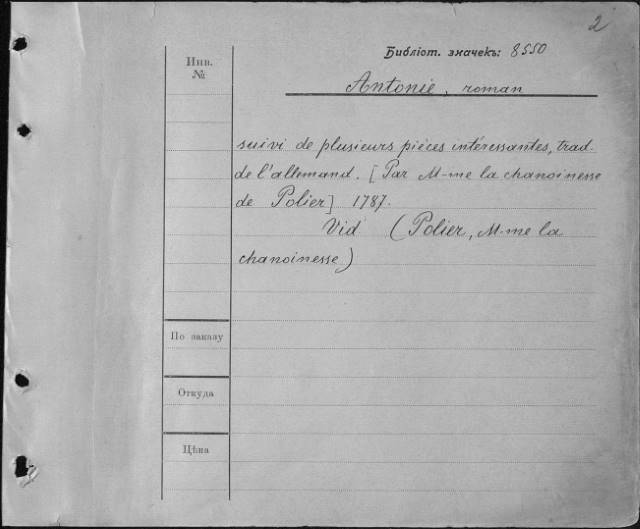 2
Библіот. значекъ: 8550
Инв.
№
Antonie, roman
suivi de plusieurs pièces intéressantes, trad.
de l'allemand. [Par M-me la chanoinesse
de Polier] 1787.
Vid (Polier, M-me la
chanoinesse)
По заказу
Откуда
Цѣна